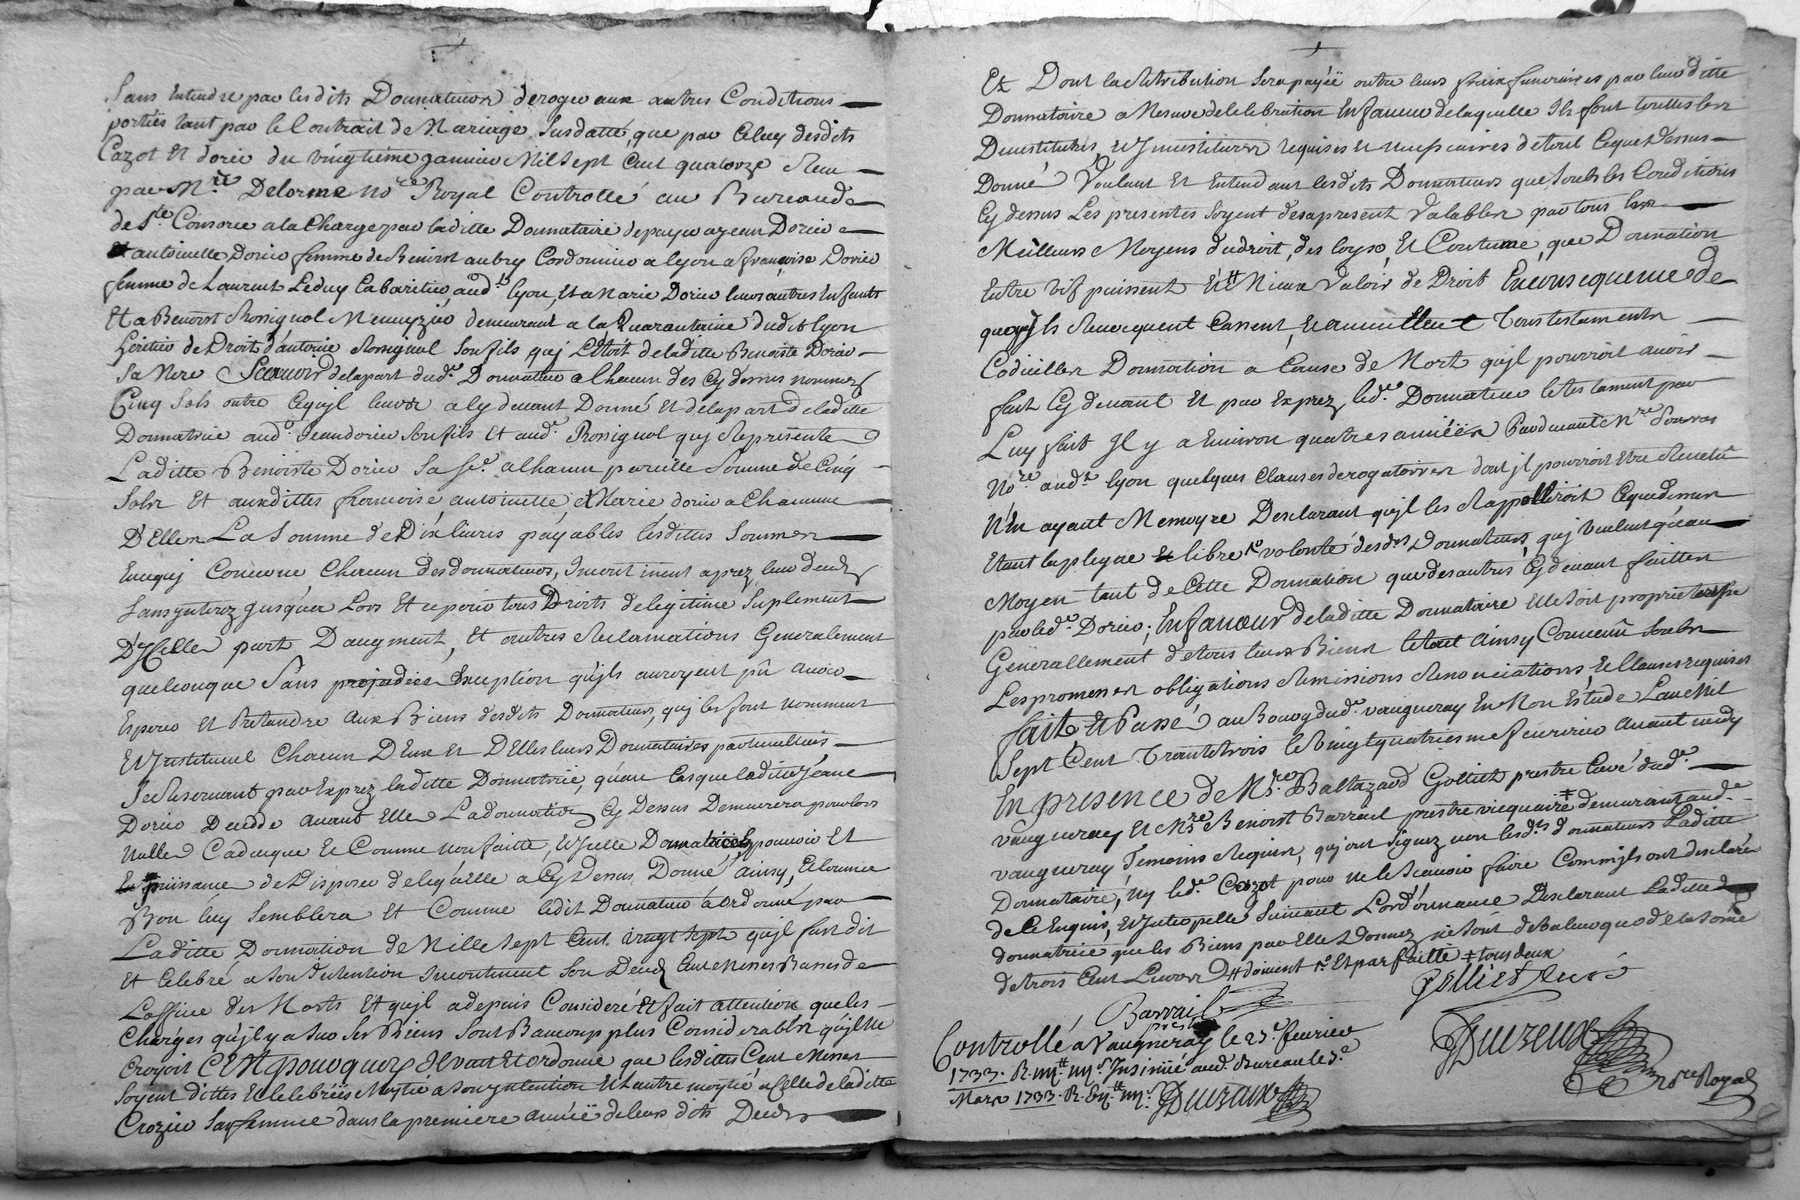 Sans Entendre par lesdits Donnateurs deroger aux autres Conditions
portéés tant par le Contrait de Mariage Susdatté, que par Celuy desdits
Cazot Et dorier du vingtieme janvier Mil sept Cent quatorze Receu
par Mre Delorme Nore Royal Controllé au Bureau de
de Ste Consorce a la Charge par laditte Donnataire de payer a jean Dorier a
antoinette Dorier femme de Benoist aubry Cordonnier a lyon a françoise Dorier
femme de Laurent Leduy Cabaretier aud. lyon, Et a Marie Dorier leurs autres Enfants
Et a Benoist Rossignol Menuyzier demeurant a la Quarantaine dudit lyon
heritier de Droit d'antoine Rossignol Son fils quj L'Etoit de laditte Benoiste Dorier
Sa Mere Scauoir de la part dud. Donnateur a Chacun des Cy dessus nommez
Cinq Sols outre Cequjl leur a Cy deuant Donné Et de la part de laditte
Donnatrice aud. Jean dorier Son fils Et aud. Rossignol quj Represente
Laditte Benoiste Dorier Sa fe. a Chacun pareille Somme de Cinq
Sols Et auxdittes francoise, antoinette, & Marie dorier a Chacune
D'Elles La Somme de Dix liures payables lesdittes Sommes
Encequj Concerne Chacun des donnateurs, Incontinent aprez leur decedz
Sans ynterez jusqu'alors Et ce pour tous Droits de legitime Suplement
D'Jcelle part Daugment, Et autres Reclamations Generalement
quelconque Sans prejudice Exception qu'jls auroyent pû auoir
Esperer Et Pretandre aux Biens desdits Donnateurs, quj les font nomment
Et Jnstituent Chacun D'Eux et D'Elles leurs Donnataires particulliers
Se Reseruant par Exprez laditte Donnatrice, qu'au Cas que laditte Jeanne
Dorier Decede auant Elle La donnation Cy Dessus Demeurera pour lors
Nulle Caduque Et Comme non faitte, Et Jcelle Donnatrice pouuoir Et
puissance de Disposer de ce qu'elle a Cy Dessus Donné ainsy, Et Comme
Bon luy Semblera Et Comme ledit Donnateur a Ordonné par
Laditte Donnation de Mille Sept Cent vingt Sept qu'jl fut dit
Et Celebré a Son Jntention Jncontinent Son Decedz Cent Messes Basses de
L'office des Morts Et qujl a depuis Consideré Et fait attention que les
Charges qu'jl y a Sur Ses Biens Sont Beaucoup plus Considerables qu'jl ne
Croyoit C'Est pourquoy Jl Veut Et ordonne que lesdittes Cent Messes
Soyent dittes Et Celebréés Moytié a Son yntention Et l'autre moytié a Celle de laditte
Crozier Sa femme dans la premiere année de leurs dits Decedz
Et Dont la Retribution Sera payéé outre leurs fraix funeraires par leurditte
Donnataire a Mesure de la Celebration En faueur de laquelle Jls sont touttes les
Deuestitures, Et Jnuestitures requises Et necessaires de tout Ce que Dessus
Donné Voulant Et Entendant lesdits Donnateurs que Soubs les Conditions
Cy dessus Les presentes Soyent des apresent Valables par tous les
Meilleurs Moyens du droit, des loys, Et Coutume, que Donnation
Entre vifs puissent Et Mieux Valoir de Droit En Consequence de
quoy Jls Reuocquent Cassent, Et annullent Tous testaments
Codicilles Donnation a Cause de Mort qu'jl pourroit auoir
fait Cy deuant Et par Exprez led. Donnateur le testament par
Luy fait Jl y a Enuiron quatres années Pardeuant Mre Souvras
Nore aud. lyon quelques Clauses derogatoires dont jl pourroit Etre Reuetû
N'En ayant Memoyre Desclarant qu'jl les Rappelleroit Ce que dessus
Etant la pleyne Et libre volonté desds Donnateurs quj Veulent qu'au
Moyen tant de Cette Donnation que des autres Cy deuant faittes
par led. Dorier; En faueur de laditte Donnataire Elle Soit proprietaire
Generallement de tous leurs Biens Le tout Ainsy Conuenû Soubs
Les promesses obligations Remissions Renonciations, Et Clauses requises
fait Et Passé au Bourg dud. vaugneray En Mon Estude L'an Mil
Sept Cent Trante trois le Vingt quatriesme feurier Auant midy
En presence de Mre Baltazard Golliet prestre Curé dud.
vaugneray Et Mre Benoist Barrail prestre vicquaire demeurant aud.
vaugneray Temoins Requis, quj ont Signez non lesds donnateurs Laditte
Donnataire, ny led. Cazot pour ne le Scauoir faire Comm'jls ont desclaré
de Ce Enquis, Et Jnterpellé Suiuant L'ordonnance Desclarant Laditte
donnatrice que les Biens par Elle Donnez, ne Sont de Valeur que de la Some
de trois Cent Liures # doiuent Et parfaitte + tous deux
Golliet Curé
Barrail
pres
Controllé a Vaugneray le 25e feurier
1733. R. Insinué aud. Bureau le 3e
Mars 1733. R.
Duzeux
Nore Royal